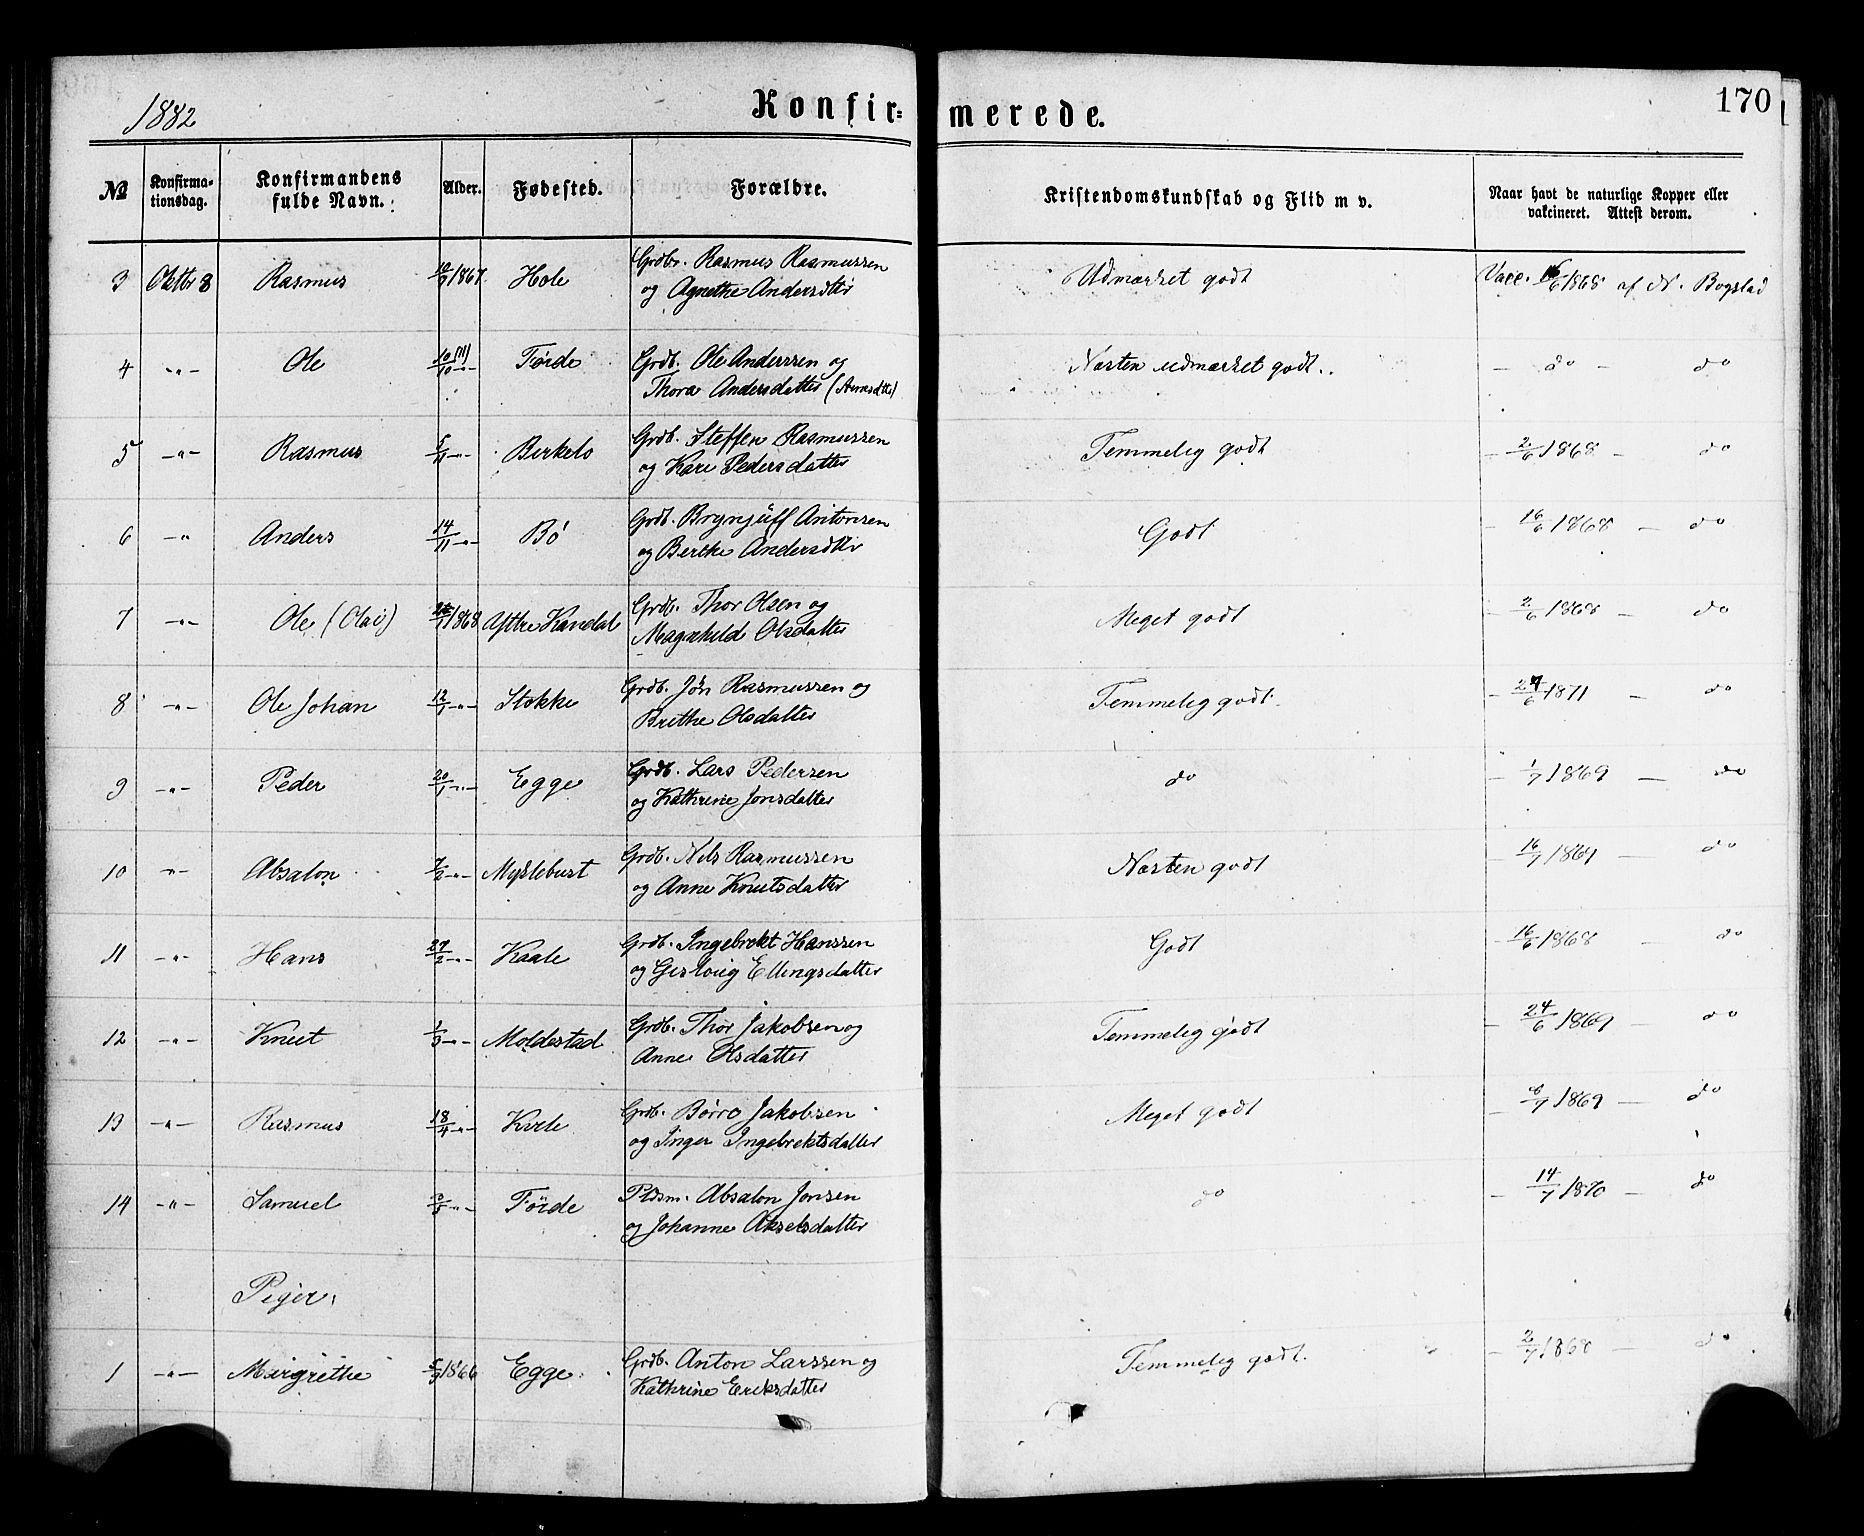 1882
Konfir-
merede.
170
№
Konfirma-
tionsdag.
Konfirmandens
fulde Navn.
Alder.
Fødested.
Forældre.
Kristendomskundskab og Flid m v.
Naar havt de naturlige Kopper eller
vakcineret. Attest derom.
3 Oktbr 8 Rasmus 1867 Hole Grdbr. Rasmus Rasmussen
og Agnethe Andersdtter
Udmærket godt Vacc. 1868 af N. Bogstad
4 -"- Ole 10/10 -"- Förde Grdb. Ole Anderssen og
Thora Andersdatter
Næsten udmærket godt. - do - do
5 -"- Rasmus 5/11 -"- Birkelo Grdb. Steffen Rasmussen
og Kari Pedersdatter
Temmelig godt - 2/6 1868 - do
6 -"- Anders 14/11 -"- Bö Grdb. Brynjülf Antonsen
og Berthe Andersdtter
Godt - 16/6 1868 - do
7 -"- Ole (Olai) 1868 Aftre Kandal Grdb. Thor Olsen og
Magnhild Olsdatter
Meget godt - 2/6 1868 - do
8 -"- Ole Johan 12/1 -"- Stokke Grdb. Jón Rasmussen og
Brithe Olsdatter
Temmelig godt. - 1871 - do
9 -"- Peder 20/1 -"- Egge Grdb. Lars Pedersen
og Kathrine Jonsdatter
do - 1/7 1869 - do
10 -"- Absalon 7/2 -"- Myklebust Grdb. Nils Rasmussen
og Anne Knutsdatter
Næsten godt - 16/7 1869 - do
11 -"- Hans 27/2 -"- Kaale Grdb. Ingebrekt Hanssen
og Gislaug Ellingsdatter
Godt - 16/6 1868 - do
12 -"- Knut 1/3 -"- Moldestad Grdb. Thor Jakobsen og
Anne Olsdatter
Temmelig godt - 24/6 1869 - do
13 -"- Rasmus 18/4 -"- Kvile Grdb. Börre Jakobsen
og Inger Ingebrektsdatter
Meget godt - 8/7 1869 - do
14 -"- Samuel -"- Förde Pldsm. Absalon Jonsen
og Johanne Akselsdatter
do - 14/7 1870 - do
Piger.
1 -"- Margrethe 1866 Egge. Grdb. Anton Larssen og
Kathrine Eriksdatter
Temmelig godt. - 2/7 1868 - do